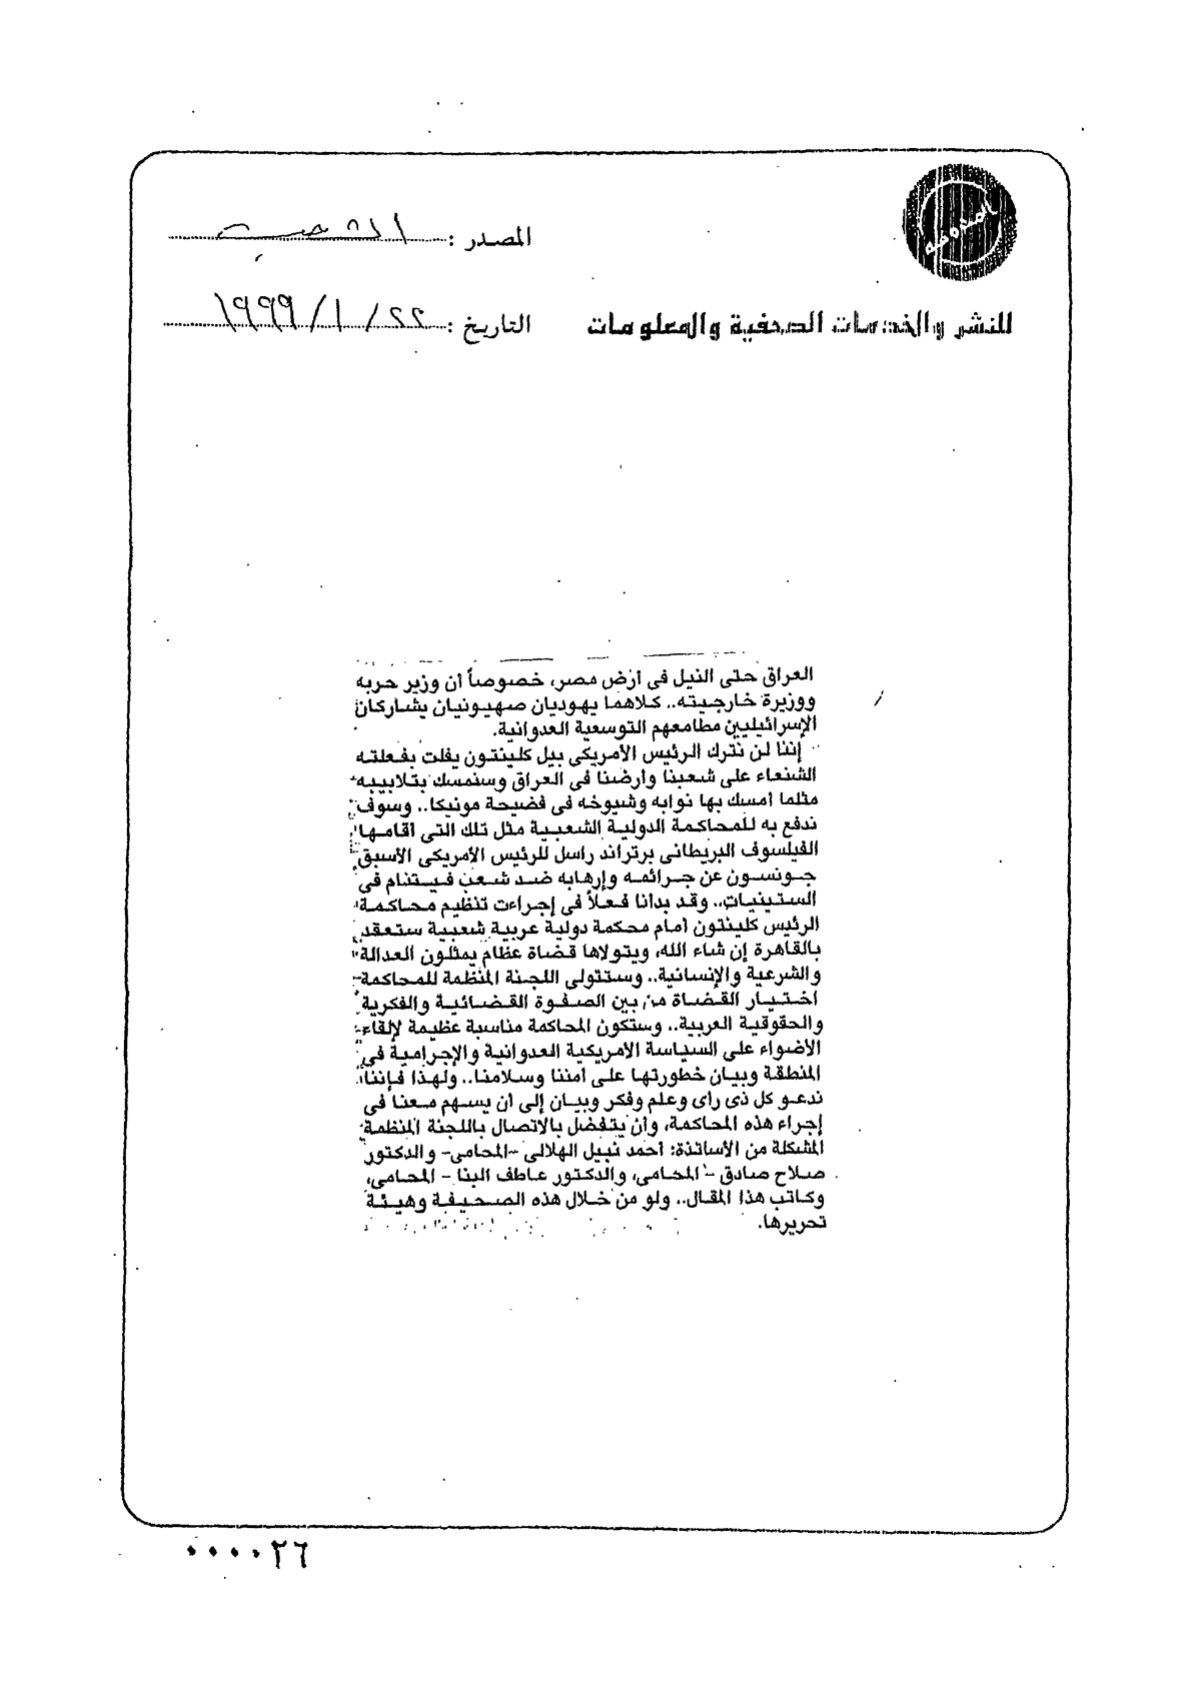 المصدر : الشعب
للنشر والخدمات الصحفية والمعلومات
التاريخ : ٢٢ / ١ / ١٩٩٩
العراق حتى النيل فى أرض مصر، خصوصاً أن وزير حربه
ووزيرة خارجيته.. كلاهما يهوديان صهيونيان يشاركان
الإسرائيليين مطامعهم التوسعية العدوانية.
إننا لن نترك الرئيس الأمريكى بيل كلينتون يفلت بفعلته
الشنعاء على شعبنا وأرضنا فى العراق وسنمسك بتلابيبه
مثلما أمسك بها نوابه وشيوخه فى فضيحة مونيكا.. وسوف
ندفع به للمحاكمة الدولية الشعبية مثل تلك التى أقامها
الفيلسوف البريطانى برتراند راسل للرئيس الأمريكى الأسبق
جونسون عن جرائمه وإرهابه ضد شعب فيتنام فى
الستينيات.. وقد بدأنا فعلاً فى إجراءت تنظيم محاكمة
الرئيس كلينتون أمام محكمة دولية عربية شعبية ستعقد
بالقاهرة إن شاء الله، ويتولاها قضاة عظام يمثلون العدالة
والشرعية والإنسانية.. وستتولى اللجنة المنظمة للمحاكمة
اختيار القضاة من بين الصفوة القضائية والفكرية
والحقوقية العربية.. وستكون المحاكمة مناسبة عظيمة لإلقاء
الأضواء على السياسة الأمريكية العدوانية والإجرامية فى
المنطقة وبيان خطورتها على أمننا وسلامنا.. ولهذا فإننا
ندعو كل ذى رأى وعلم وفكر وبيان إلى أن يسهم معنا فى
إجراء هذه المحاكمة، وأن يتفضل بالاتصال باللجنة المنظمة
المشكلة من الأساتذة: أحمد نبيل الهلالى -المحامى- والدكتور
صلاح صادق - المحامى، والدكتور عاطف البنا - المحامى،
وكاتب هذا المقال.. ولو من خلال هذه الصحيفة وهيئة
تحريرها.
٠٠٠٠٢٦